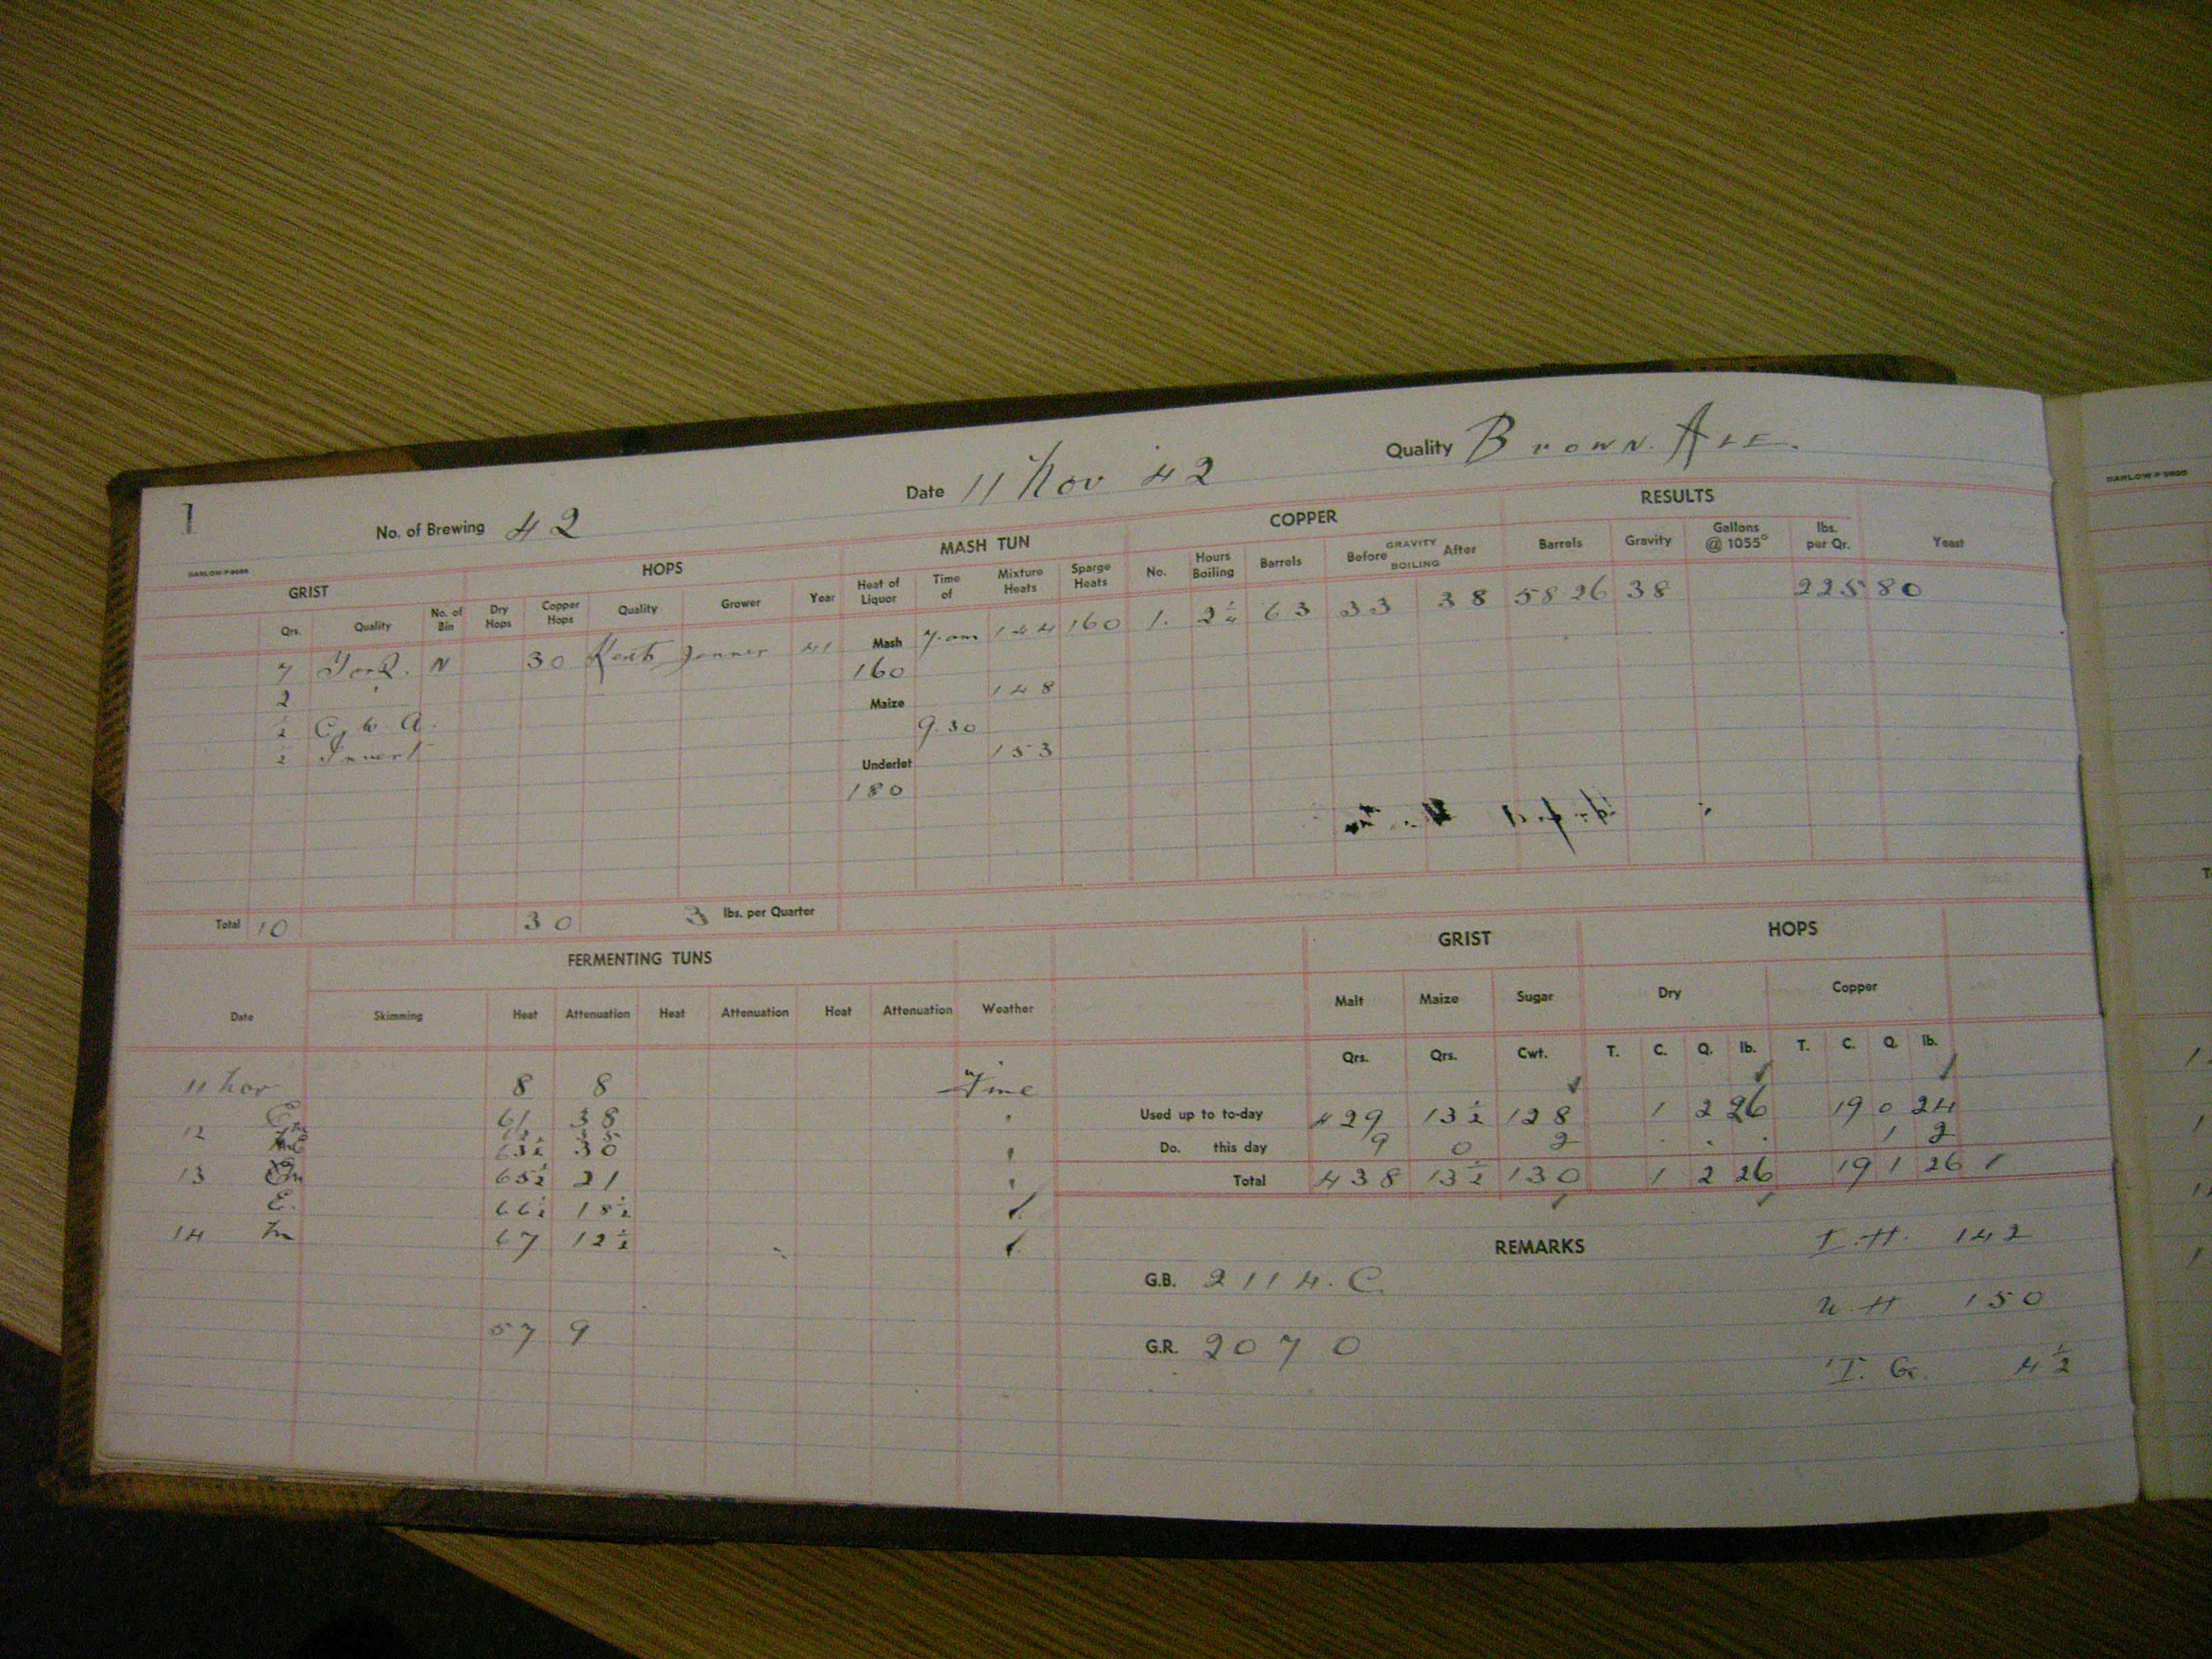 1
No. of Brewing 42 Date 11 Nov 42 Quality Brown Ale.
BARLOW P 9680
GRIST HOPS MASH TUN COPPER RESULTS
Qrs. Quality No. of Bin Dry Hops Copper Hops Quality Grower Year Heat of Liquor Time of Mixture Heats Sparge Heats No. Hours Boiling Barrels GRAVITY Before BOILING After Barrels Gravity Gallons @ 1055° lbs. per Qr. Yeast
7 York. N 30 Kent 41 Mash 7.am 144 160 1. 2¼ 63 33 38 58 26 38 225 80
2 160 148
½ C.W.A. Maize 9.30
½ Invert Underlet 153
180
Total 10 30 3 lbs. per Quarter
FERMENTING TUNS
Date Skimming Heat Attenuation Heat Attenuation Heat Attenuation Weather
11 Nov 8 8 Fine
61 38
12 63½ 30
13 65½ 21
E. 66½ 18½
14 m 67 12½
57 9
GRIST HOPS
Malt Maize Sugar Dry Copper
Qrs. Qrs. Cwt. T. C. Q. lb. T. C. Q. lb.
Used up to to-day 429 13½ 128 1 2 26 19 0 24
Do. this day 9 0 2 . . . 1 2
Total 438 13½ 130 1 2 26 19 1 26
REMARKS
I.H. 142
G.B. 2114.C.
U.H 150
G.R. 2070
T.G. 4½
BARLOW P 9680